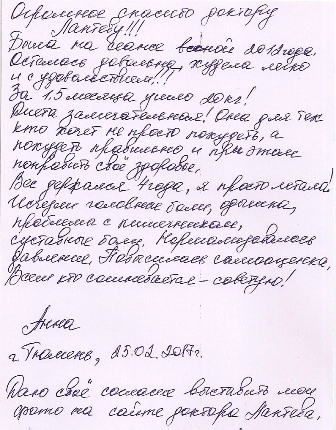 Огромное спасибо доктору
Лаптеву!!!
Была на сеансе весной 2013 года.
Осталась довольна, худела легко
и с удовольствием!!!
За 1,5 месяца ушло 20 кг!
Диета замечательная! Она для тех
кто хочет не просто похудеть, а
похудеть правильно и при этом
поправить своё здоровье.
Вес держался 4 года, я просто летала!
Исчезли головные боли, одышка,
проблемы с кишечником,
суставные боли. Нормализовалось
давление. Повысилась самооценка.
Всем кто сомневается - советую!
Анна
г. Тюмень, 25.02.2017г.
Даю своё согласие выставить мои
фото на сайте доктора Лаптева.